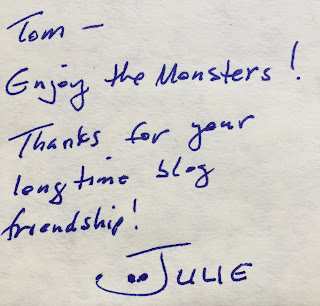 Tom —
Enjoy the Monsters!
Thanks for your
longtime blog
friendship!
JULIE